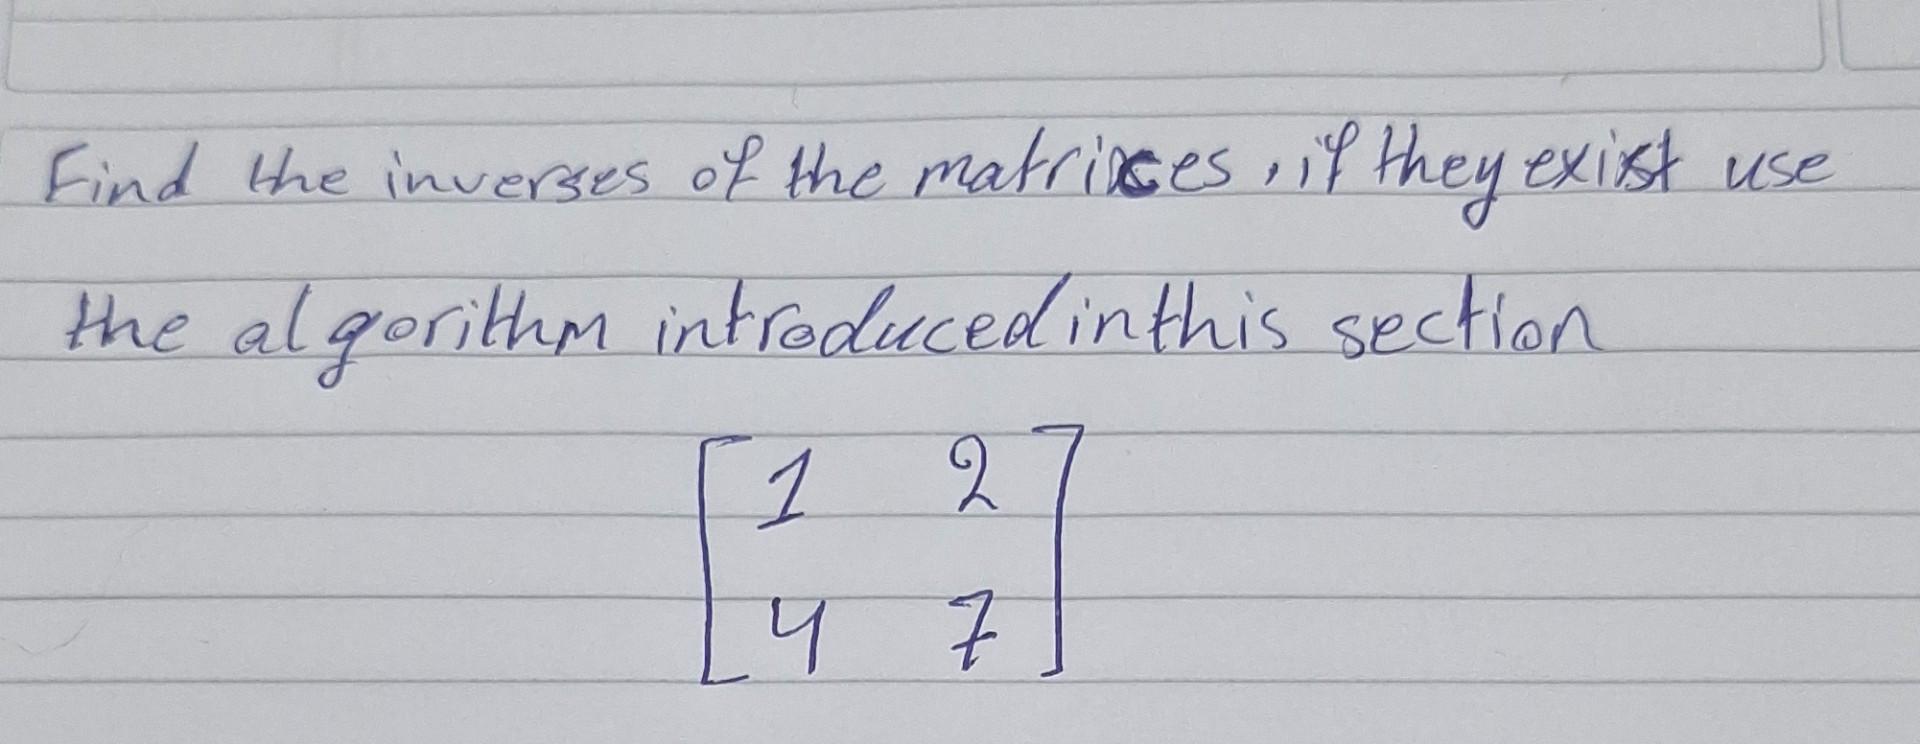 Find the inverses of the matrices, if they exist use
the algorithm introduced in this section
1 2
4 7